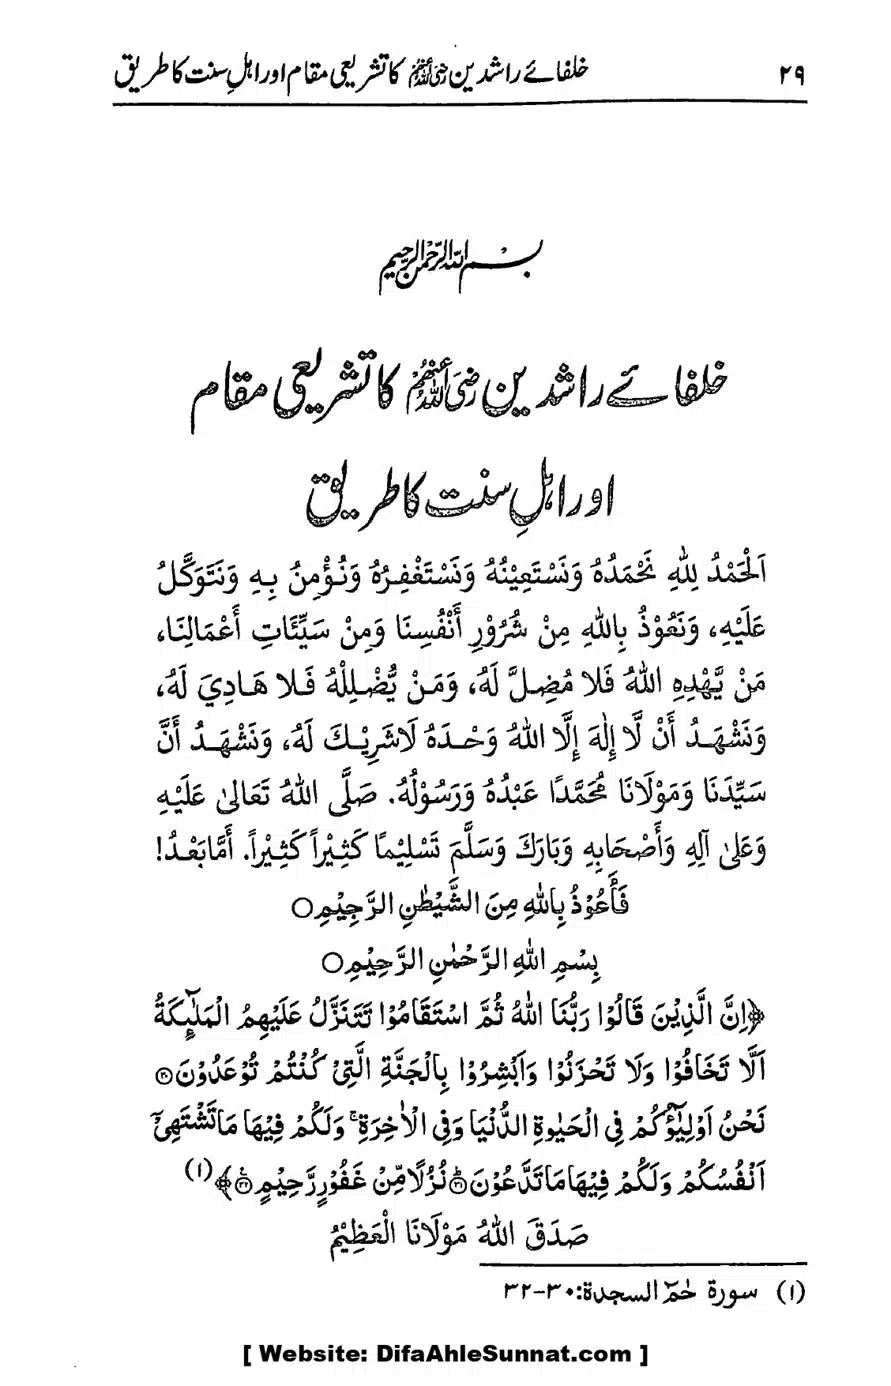 ۲۹ خلفائے راشدین رضی اللہ عنہم کا تشریعی مقام اور اہلِ سنت کا طریق
بسم اللہ الرحمن الرحیم
خلفائے راشدین رضی اللہ عنہم کا تشریعی مقام
اور اہلِ سنت کا طریق
اَلْحَمْدُ لِلّٰهِ نَحْمَدُهٗ وَنَسْتَعِيْنُهٗ وَنَسْتَغْفِرُهٗ وَنُؤْمِنُ بِهٖ وَنَتَوَكَّلُ
عَلَيْهِ، وَنَعُوْذُ بِاللهِ مِنْ شُرُوْرِ أَنْفُسِنَا وَمِنْ سَيِّئَاتِ أَعْمَالِنَا،
مَنْ يَّهْدِهِ اللهُ فَلَا مُضِلَّ لَهٗ، وَمَنْ يُّضْلِلْهُ فَلَا هَادِيَ لَهٗ،
وَنَشْهَدُ أَنْ لَّا إِلٰهَ إِلَّا اللهُ وَحْدَهٗ لَاشَرِيْكَ لَهٗ، وَنَشْهَدُ أَنَّ
سَيِّدَنَا وَمَوْلَانَا مُحَمَّدًا عَبْدُهٗ وَرَسُوْلُهٗ. صَلَّى اللهُ تَعَالىٰ عَلَيْهِ
وَعَلىٰ آلِهٖ وَأَصْحَابِهٖ وَبَارَكَ وَسَلَّمَ تَسْلِيْمًا كَثِيْراً كَثِيْراً. أَمَّابَعْدُ!
فَأَعُوْذُ بِاللهِ مِنَ الشَّيْطٰنِ الرَّجِيْمِ○
بِسْمِ اللهِ الرَّحْمٰنِ الرَّحِيْمِ○
﴿اِنَّ الَّذِيْنَ قَالُوْا رَبُّنَا اللهُ ثُمَّ اسْتَقَامُوْا تَتَنَزَّلُ عَلَيْهِمُ الْمَلٰٓئِكَةُ
اَلَّا تَخَافُوْا وَلَا تَحْزَنُوْا وَاَبْشِرُوْا بِالْجَنَّةِ الَّتِيْ كُنْتُمْ تُوْعَدُوْنَ۝۳۰
نَحْنُ اَوْلِيٰٓؤُكُمْ فِي الْحَيٰوةِ الدُّنْيَا وَفِي الْاٰخِرَةِ ۚ وَلَكُمْ فِيْهَا مَاتَشْتَهِيْٓ
اَنْفُسُكُمْ وَلَكُمْ فِيْهَا مَاتَدَّعُوْنَ۝۳۱ نُزُلًا مِّنْ غَفُوْرٍ رَّحِيْمٍ۝۳۲﴾(۱)
صَدَقَ اللهُ مَوْلَانَا الْعَظِيْمُ
(۱) سورۃ حٰمٓ السجدۃ:۳۰-۳۲
[ Website: DifaAhleSunnat.com ]